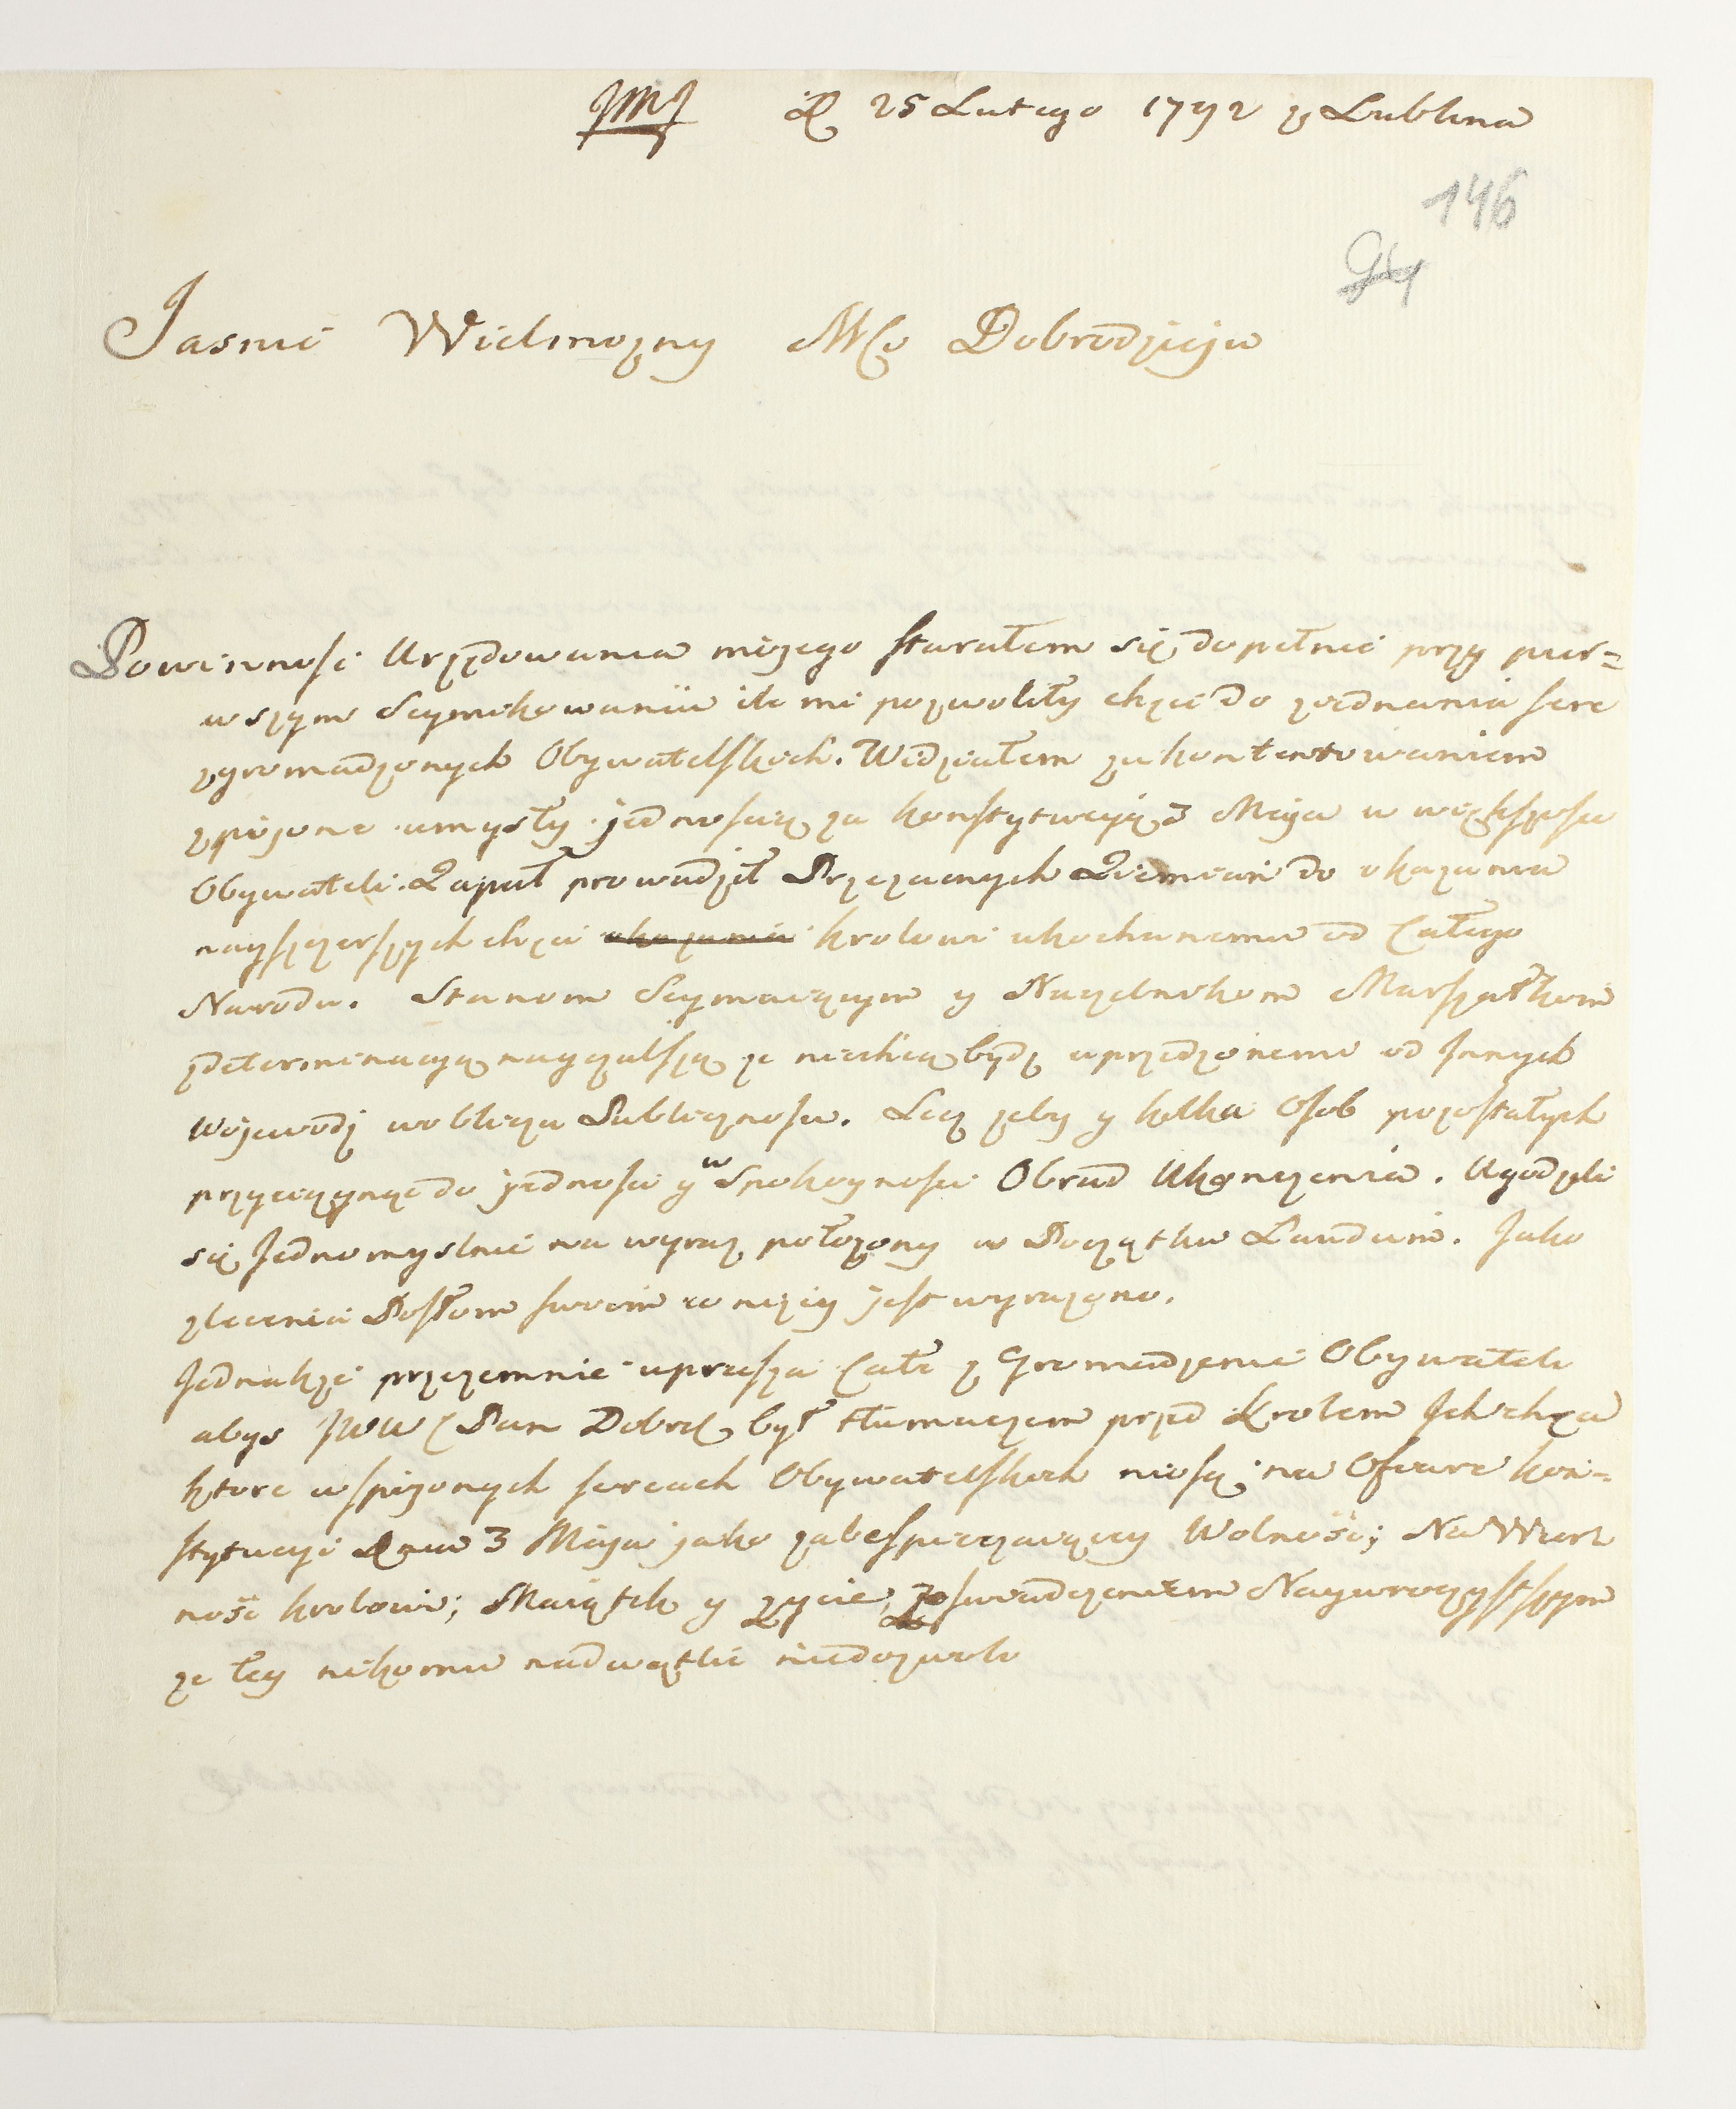 JMJ D 25 Lutego 1792 z Lublina
146
Jasnie Wielmozny MCo Dobrodzieju
Powinnosc Urzędowania mojego starałem się dopełnic przy pier=
wszym Seymikowaniu ile mi pozwoliły chęci do ziednania serc
zgromadzonych Obywatelskich. Widziałem z ukontentowaniem
spojone umysły jednoscią za konstytucyją 3 Maja w większosci
Obywateli. Zapał prowadził Przezacnych Ziemian do okazania
nayszczerszych chęci okazania krolowi ukochanemu od Całego
Narodu. Stanom Seymuiącym y Naczelnikom Marszałkom
z determinacyą nayczulszą ze niechcą bydz uprzedzonemi od Innych
Wojewodz w obliczu Publicznosci. Lecz zeby y kilka Osob pozostałych
przyciągnąc do jednosci y w Spokoynosci Obrad Ukonczenia. Ugodzili
się Jednomyslnie na wyraz połozony w Początku Laudum. Jako
zlecenia Posłom swoim co nizey jest wyrazono.
Jednakze przezemnie uprasza Całe z Gromadzenie Obywateli
abys JWW Pan Dobrdz był tłumaczem przed Krolem Ich chęci
ktore w spojonych sercach Obywatelskich niosą na Ofiare kon=
stytucyi Dnia 3 Maja jako zabespieczaiącey Wolnośc; Na Wier
ność krolowi; Maiątek y zycie, ze swiadczeniem Nayuroczystszym
ze tey nikomu nadwątlic niedozwolo